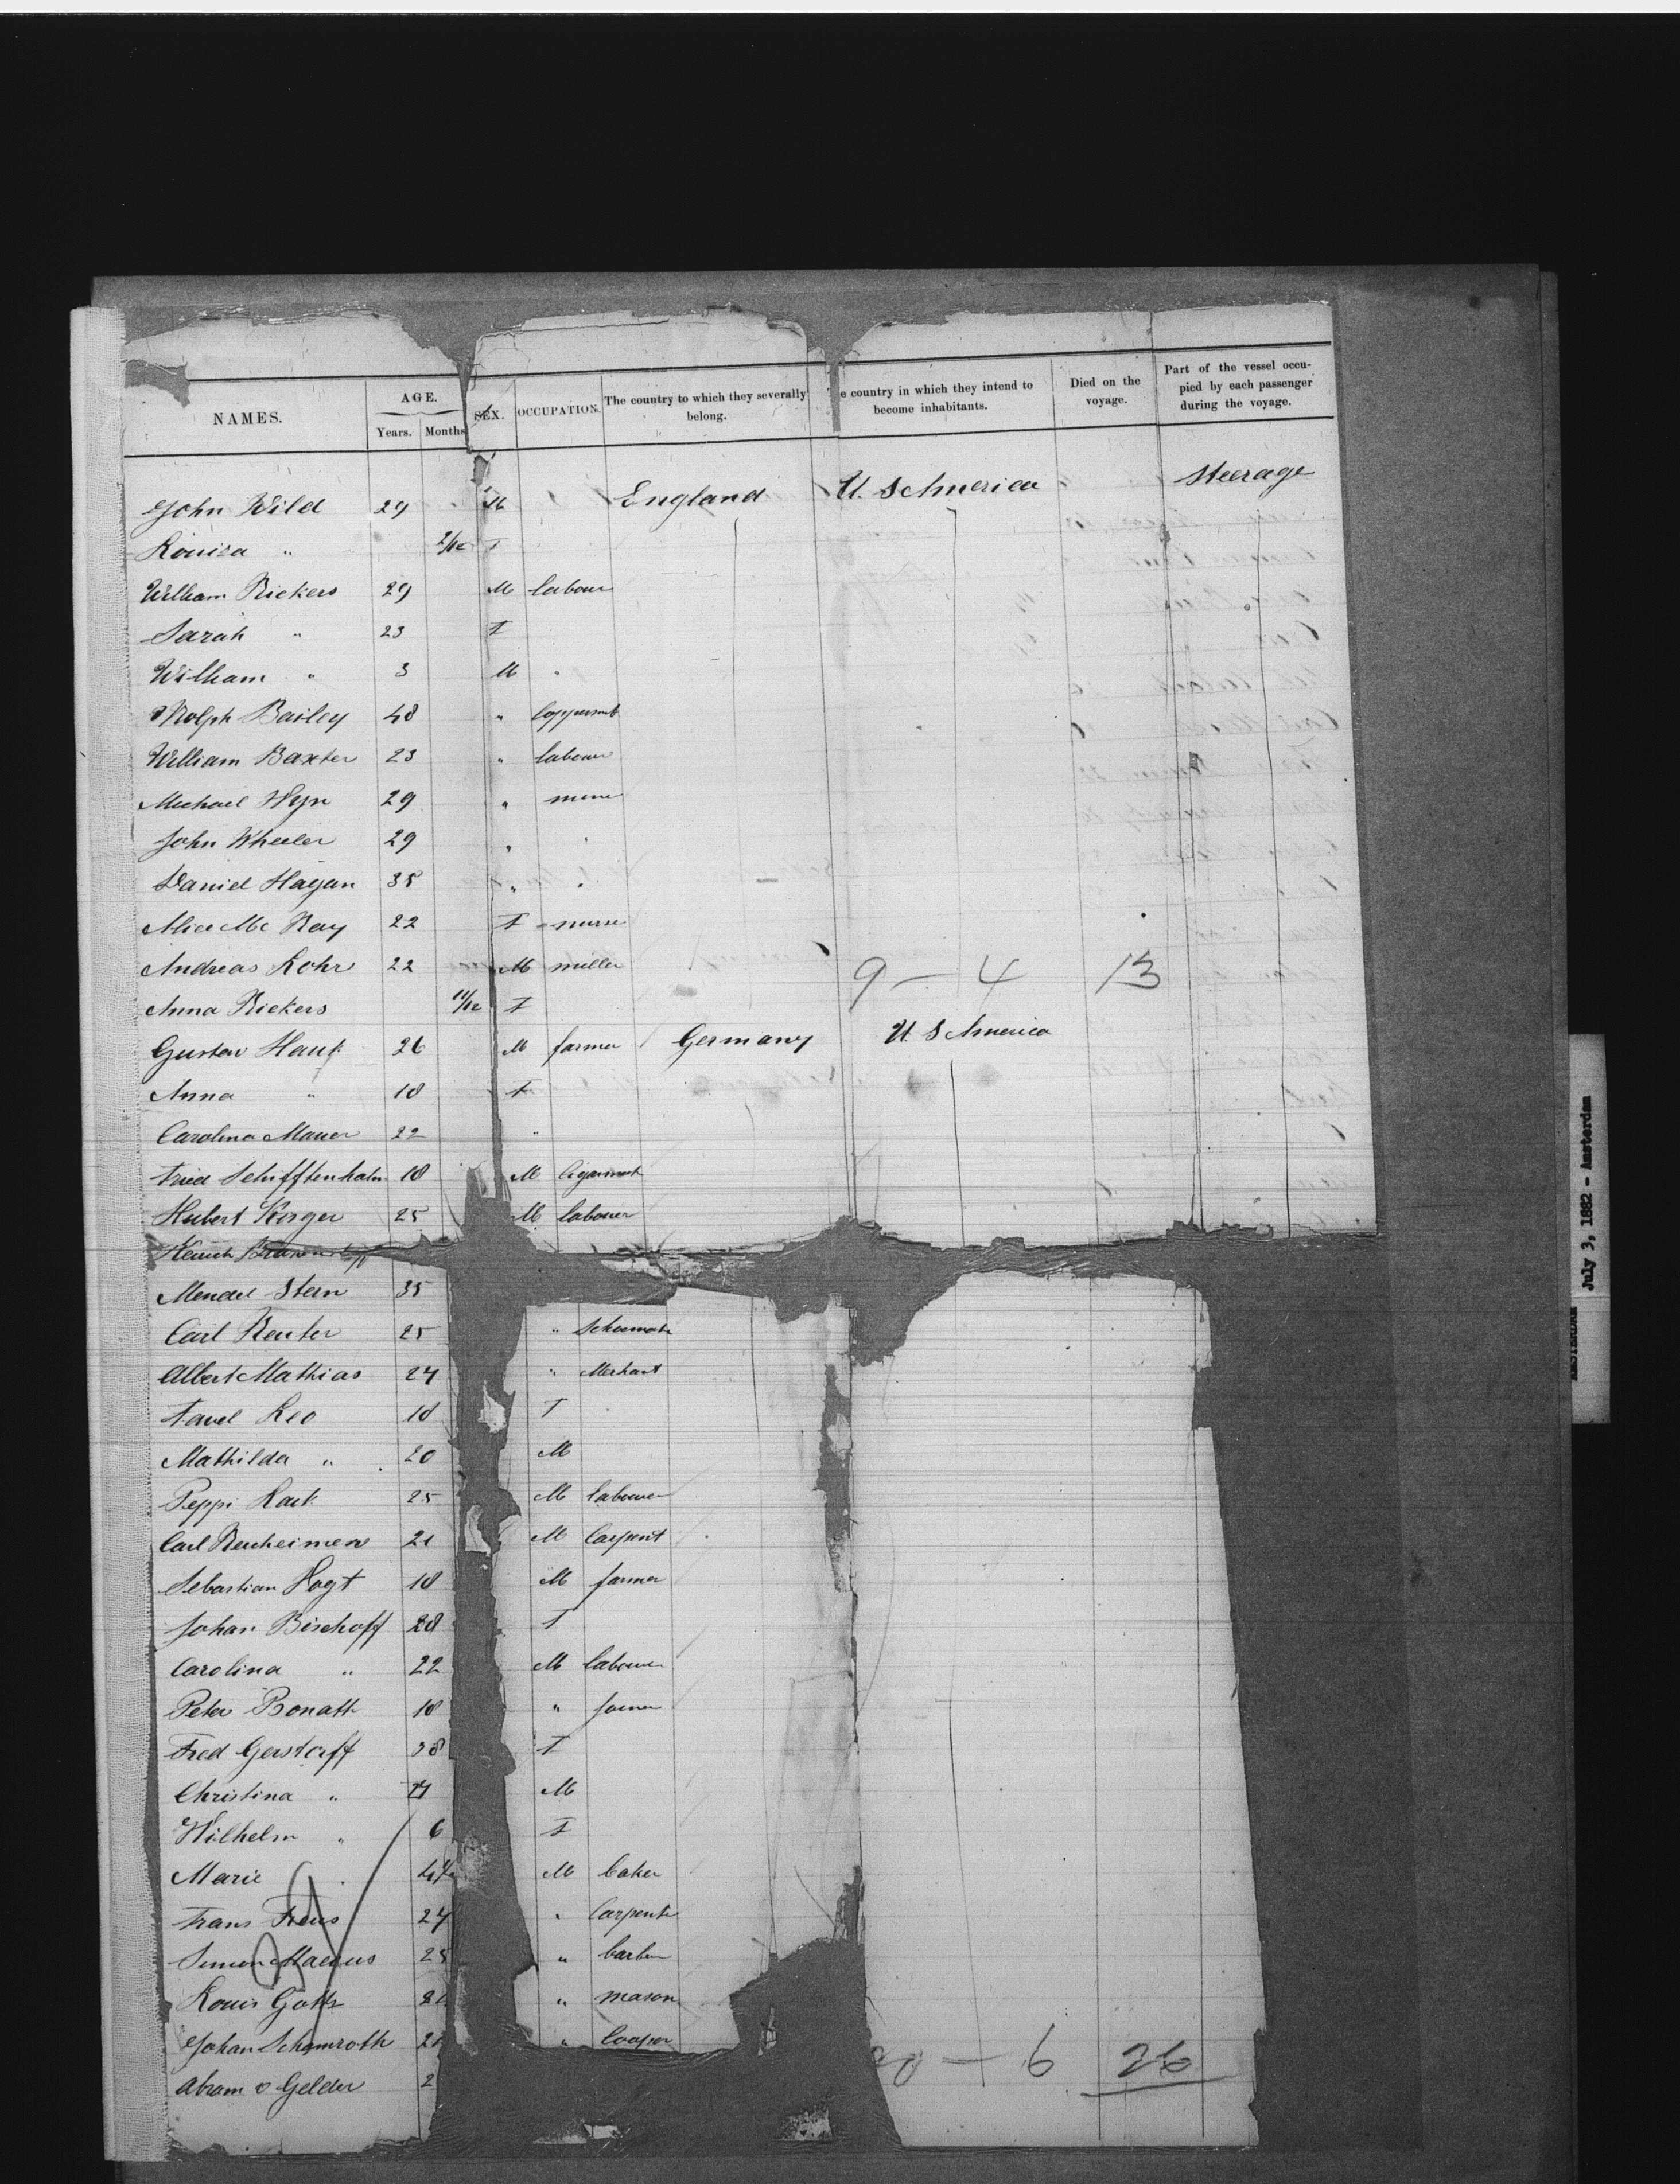 NAMES. AGE. Years. Months SEX. OCCUPATION. The country to which they severally belong. e country in which they intend to become inhabitants. Died on the voyage. Part of the vessel occupied by each passenger during the voyage.
John Wild 29 M England U. S America Steerage
Louisa " 2/12 F
William Rickers 29 M labour
Sarah " 23 F
William " 3 M "
Rolph Bailey 48 " Coppersmit
William Baxter 23 " labour
Michael Hyn 29 " miner
John Wheeler 29 " "
Daniel Hagan 35 " "
Alice Mc Ray 22 F nurse
Andreas Lohr 22 M miller 9 - 4 13
Anna Rickers 11/12 F
Gustav Hauk 26 M farmer Germany U. S America
Anna " 18 F
Carolina Mauer 22 "
Fried Schifftenhahn 18 M
Hubert 25 M labouer
Mendel Stern 35
Carl Reuter 25 "
Albert Mathias 24 " Merhant
Leo 18 F
Mathilda " 20 M
Peppi 25 M labouer
Carl 21 M Carpent
Sebastian Vogt 18 M farmer
Johan Bischoff 28 F
Carolina " 22 M labouer
Peter Bonath 18 " farmer
Fred Gerstorff 38 F
Christina " M
Wilhelm " 6 F
Marie M baker
Frans 24 " Carpente
Simon 25 " barber
Louis " mason
Johan Schamroth " Cooper
Abram v Gelder 2
20 - 6 26
July 3, 1882 - Amsterdam
AMSTERDAM